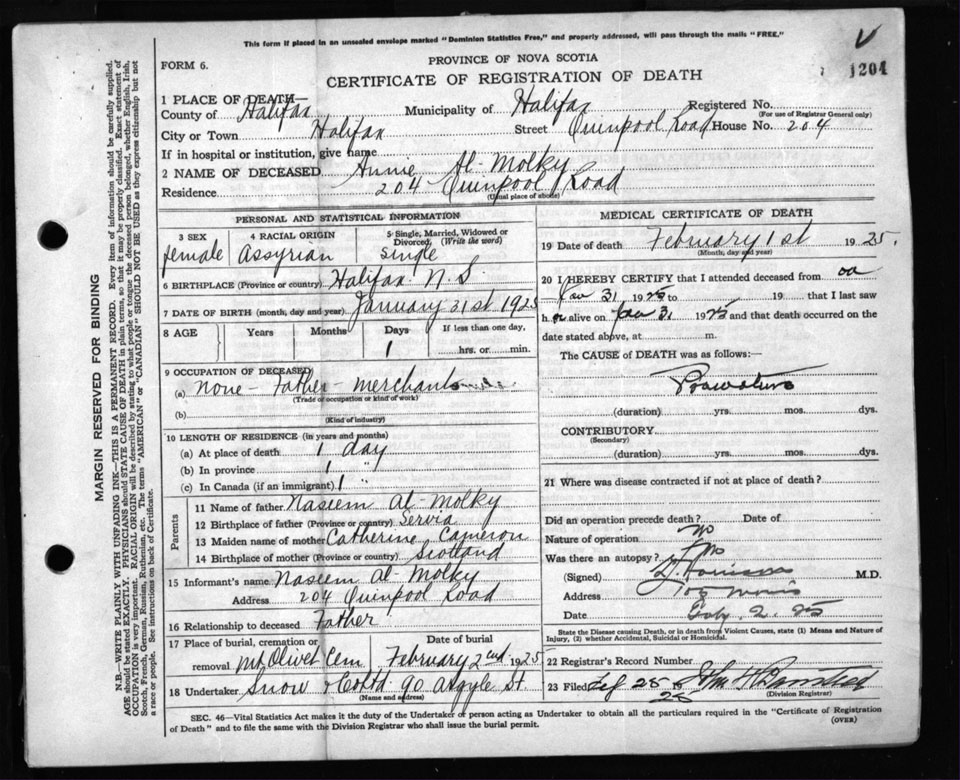 This form if placed in an unsealed envelope marked "Dominion Statistics Free," and properly addressed, will pass through the mails "FREE."
V
1204
FORM 6.
PROVINCE OF NOVA SCOTIA
CERTIFICATE OF REGISTRATION OF DEATH
1 PLACE OF DEATH—
County of Halifax Municipality of Halifax Registered No.
(For use of Registrar General only)
City or Town Halifax Street Quinpool Road House No. 204
If in hospital or institution, give name
2 NAME OF DECEASED Annie Al-Molky
Residence 204 Quinpool Road
(Usual place of abode)
PERSONAL AND STATISTICAL INFORMATION
3 SEX 4 RACIAL ORIGIN 5 Single, Married, Widowed or Divorced, (Write the word)
female Assyrian Single
6 BIRTHPLACE (Province or country) Halifax N.S.
7 DATE OF BIRTH (month, day and year) January 31st 1925
8 AGE Years Months Days If less than one day,
1 hrs. or min.
9 OCCUPATION OF DECEASED
(a) None - Father - merchant
(Trade or occupation or kind of work)
(b)
(Kind of industry)
10 LENGTH OF RESIDENCE (in years and months)
(a) At place of death 1 day
(b) In province 1 "
(c) In Canada (if an immigrant) 1
Parents
11 Name of father Naseem Al-Molky
12 Birthplace of father (Province or country) Servia
13 Maiden name of mother Catherine Cameron
14 Birthplace of mother (Province or country) Scotland
15 Informant's name Naseem Al-Molky
Address 204 Quinpool Road
16 Relationship to deceased Father
17 Place of burial, cremation or removal Mt Olivet Cem Date of burial February 2nd 1925
18 Undertaker Snow & Co Ltd 90 Argyle St
(Name and address)
MEDICAL CERTIFICATE OF DEATH
19 Date of death February 1st 1925.
(Month, day and year)
20 I HEREBY CERTIFY that I attended deceased from on
Jan 31 1925 to 19 that I last saw
h er alive on Jan 31 1925 and that death occurred on
date stated above, at m.
The CAUSE of DEATH was as follows:—
Premature
(duration) yrs. mos. dys.
CONTRIBUTORY
(Secondary)
(duration) yrs. mos. dys.
21 Where was disease contracted if not at place of death?
Did an operation precede death? No Date of
Nature of operation
Was there an autopsy? No
(Signed) M.D.
Address
Date Feby. 2. 25
State the Disease causing Death, or in death from Violent Causes, state (1) Means and Nature of Injury, (2) whether Accidental, Suicidal or Homicidal.
22 Registrar's Record Number
23 Filed Feb 25 19 25
(Division Registrar)
SEC. 46—Vital Statistics Act makes it the duty of the Undertaker or person acting as Undertaker to obtain all the particulars required in the "Certificate of Registration
of Death" and to file the same with the Division Registrar who shall issue the burial permit. (OVER)
MARGIN RESERVED FOR BINDING
N.B.—WRITE PLAINLY WITH UNFADING INK—THIS IS A PERMANENT RECORD. Every item of information should be carefully supplied.
AGE should be stated EXACTLY. PHYSICIANS should STATE CAUSE OF DEATH in plain terms, so that it may be properly classified. Exact statement of
OCCUPATION is very important. RACIAL ORIGIN will be described by stating to what people or tongue the deceased person belonged, whether English, Irish,
Scotch, French, German, Russian, Ruthenian, etc. The terms "AMERICAN" or "CANADIAN" SHOULD NOT BE USED as they express citizenship but not
a race or people. See instructions on back of Certificate.